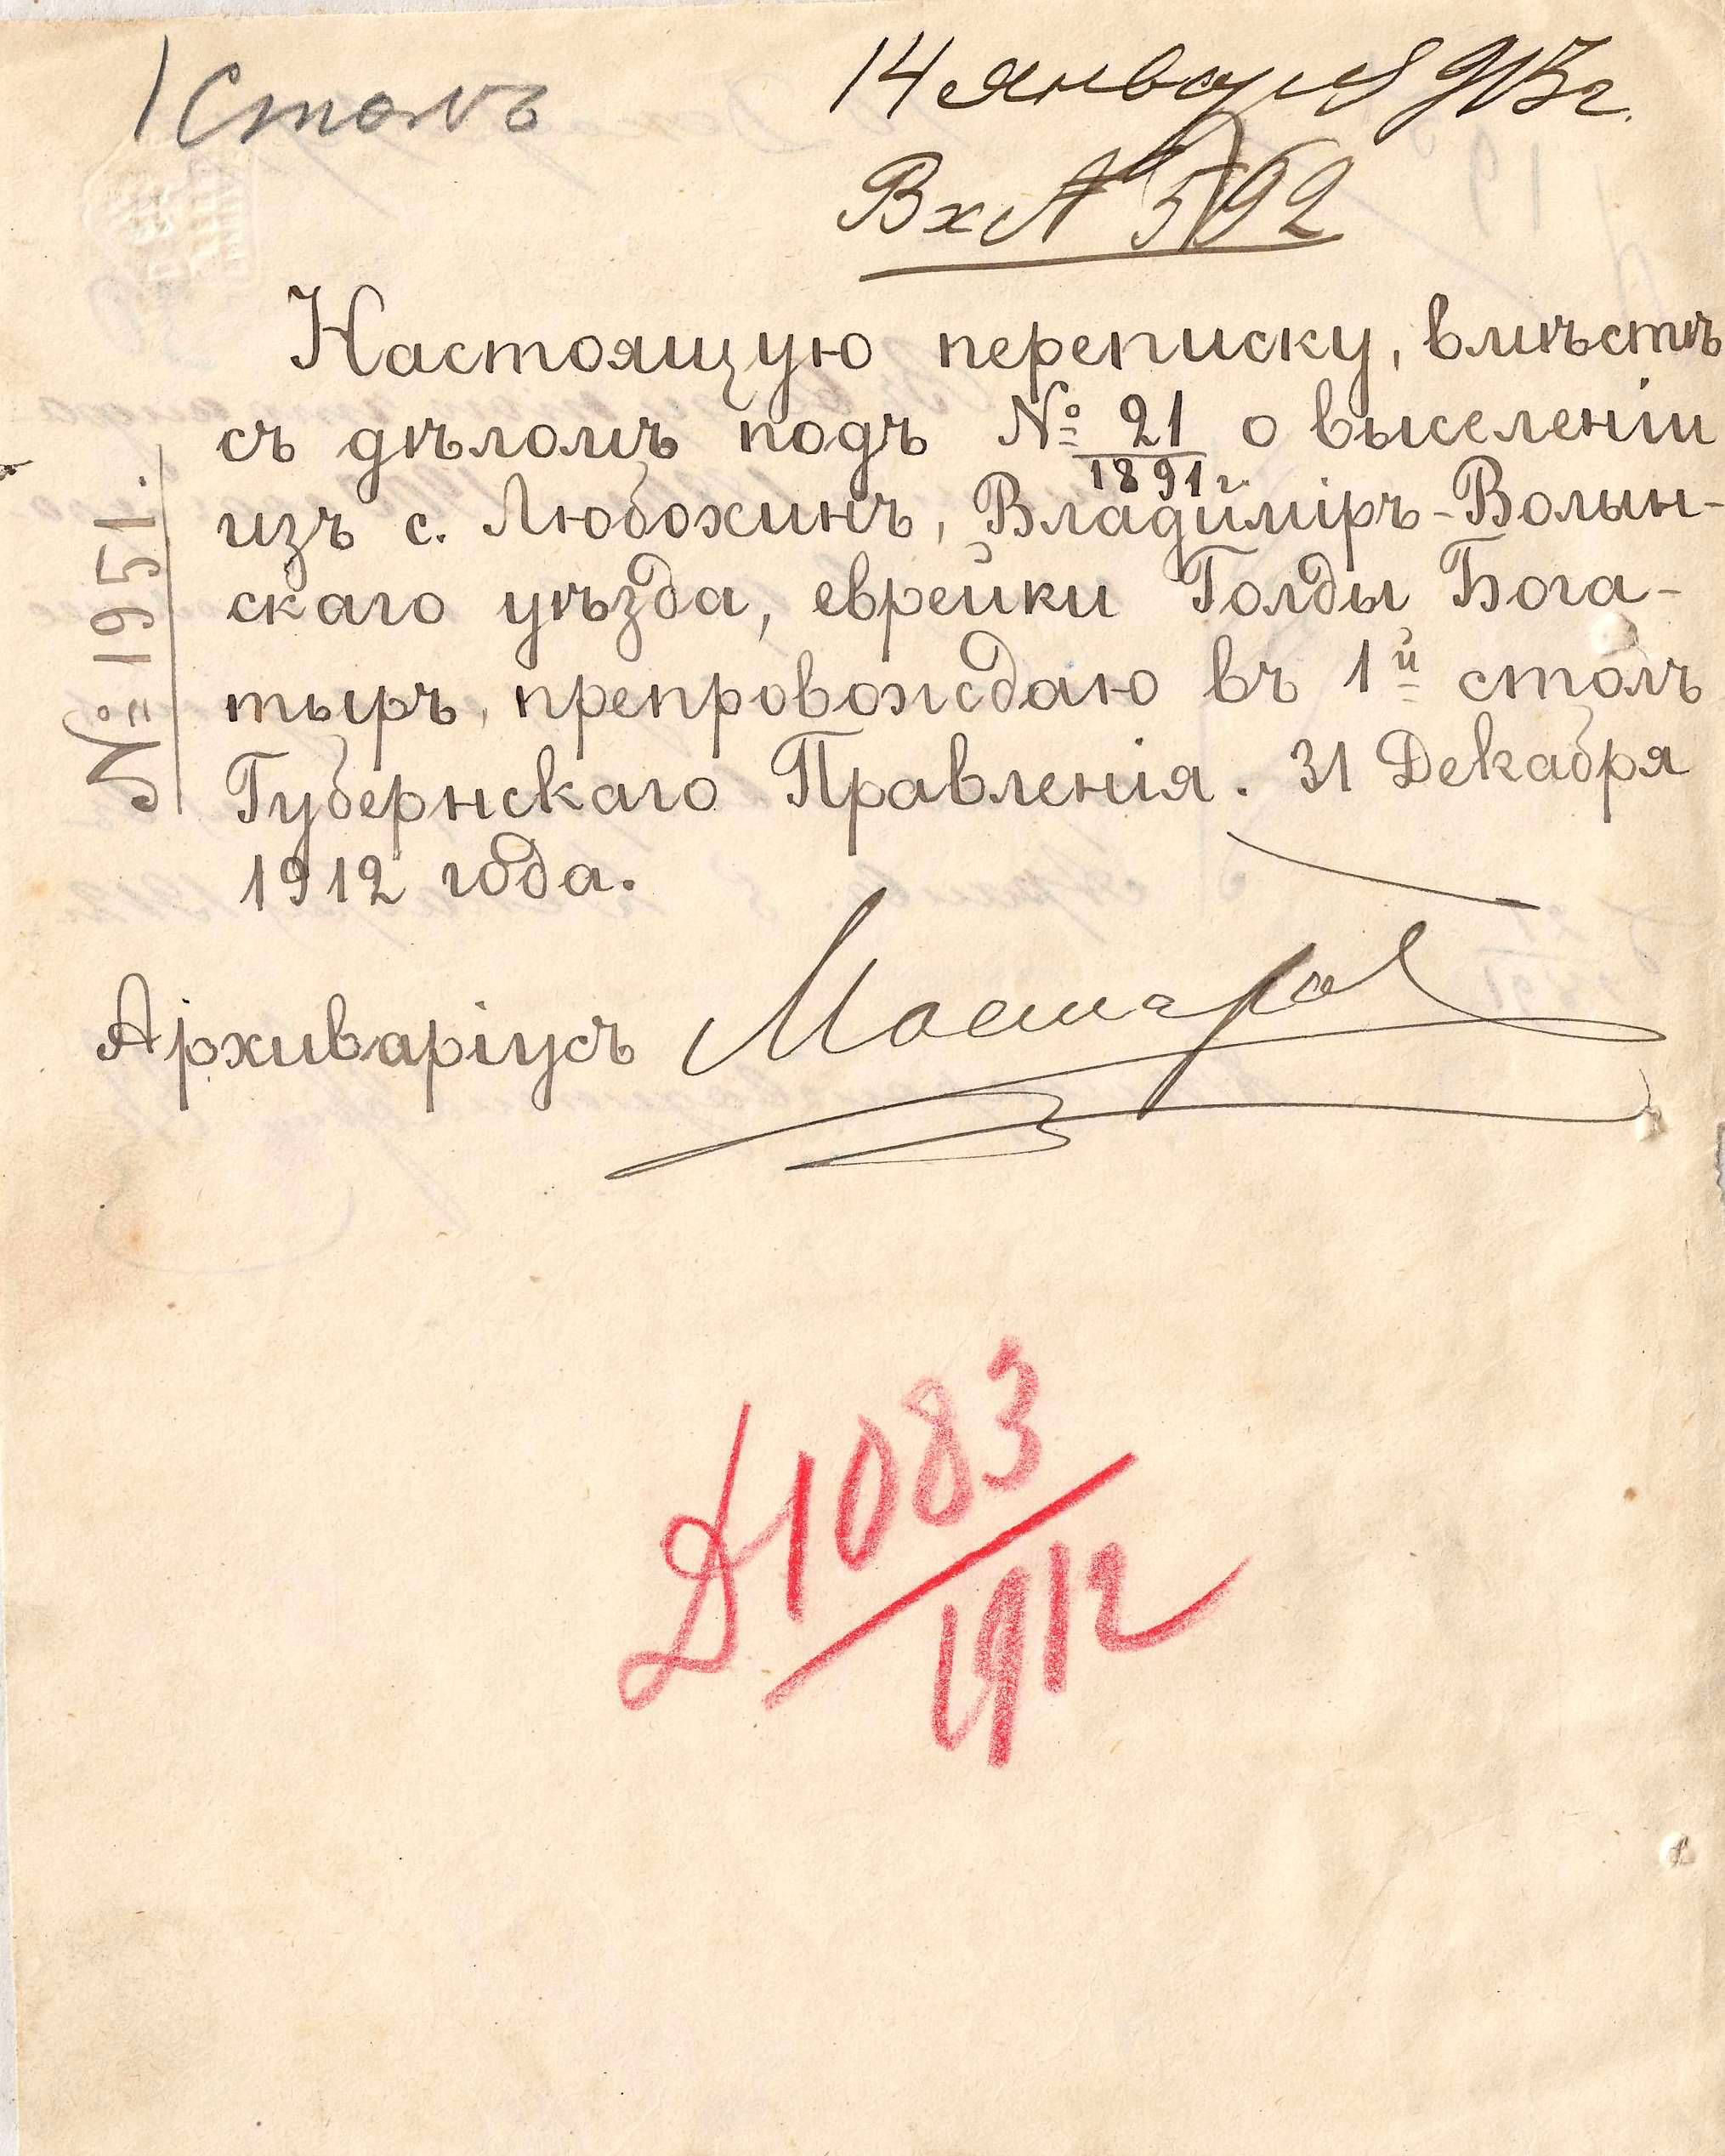 1 Столъ
14 января 913 г.
Вх № 592
Настоящую переписку, вмѣстѣ
съ дѣломъ подъ № 21/1891 г. о выселеніи
изъ с. Любохинъ, Владиміръ-Волын-
скаго уѣзда, еврейки Голды Бога-
тыръ, препровождаю въ 1й столъ
Губернскаго Правленія. 31 Декабря
1912 года.
№ 1951.
Архиваріусъ
Д 1083/1912